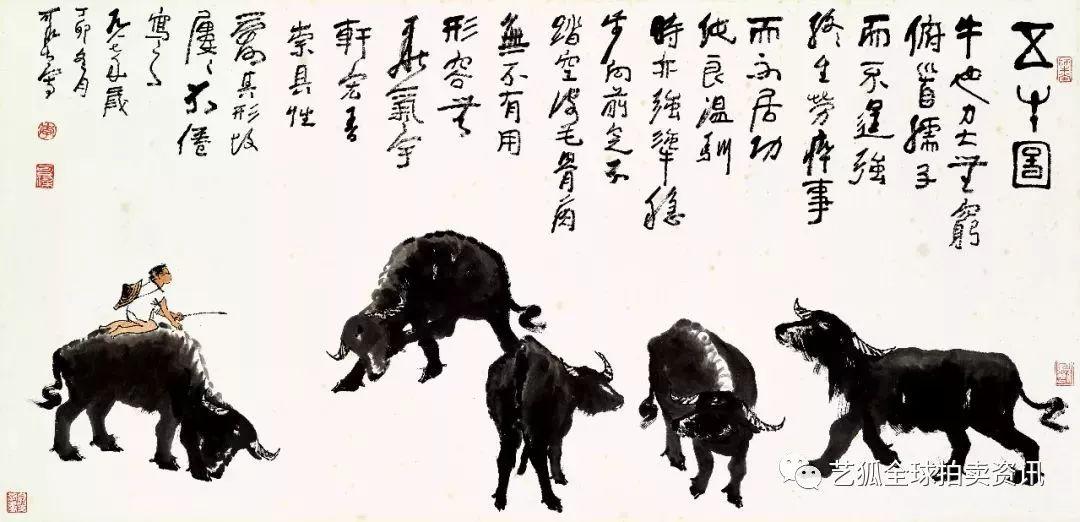 五牛圖
牛也力大無窮
俯首孺子
而不逞強
終生勞瘁事
而不居功
純良溫馴
時亦強犟穩
步向前足不
踏空皮毛骨角
無不有用
形容無
華氣宇
軒宏吾
崇其性
愛其形故
屢々不倦
寫之
年歲
丁卯冬月
可染寫
艺狐全球拍卖资讯